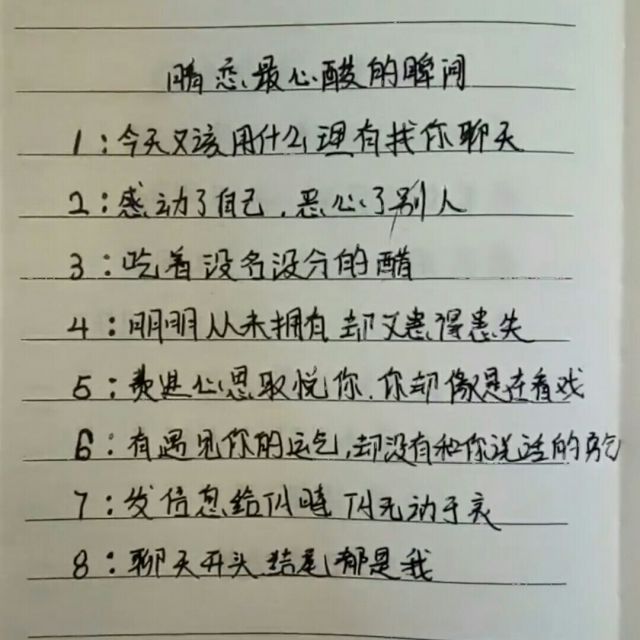 暗恋最心酸的瞬间
1：今天又该用什么理有找你聊天
2：感动了自己，恶心了别人
3：吃着没名没分的醋
4：明明从未拥有却又患得患失
5：费进心思取悦你，你却像是在看戏
6：有遇见你的运气，却没有和你说话的
7：发信息给TA TA无动于衷
8：聊天开头结尾都是我